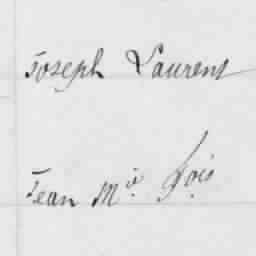 Joseph Laurent
Jean M.ie Fois